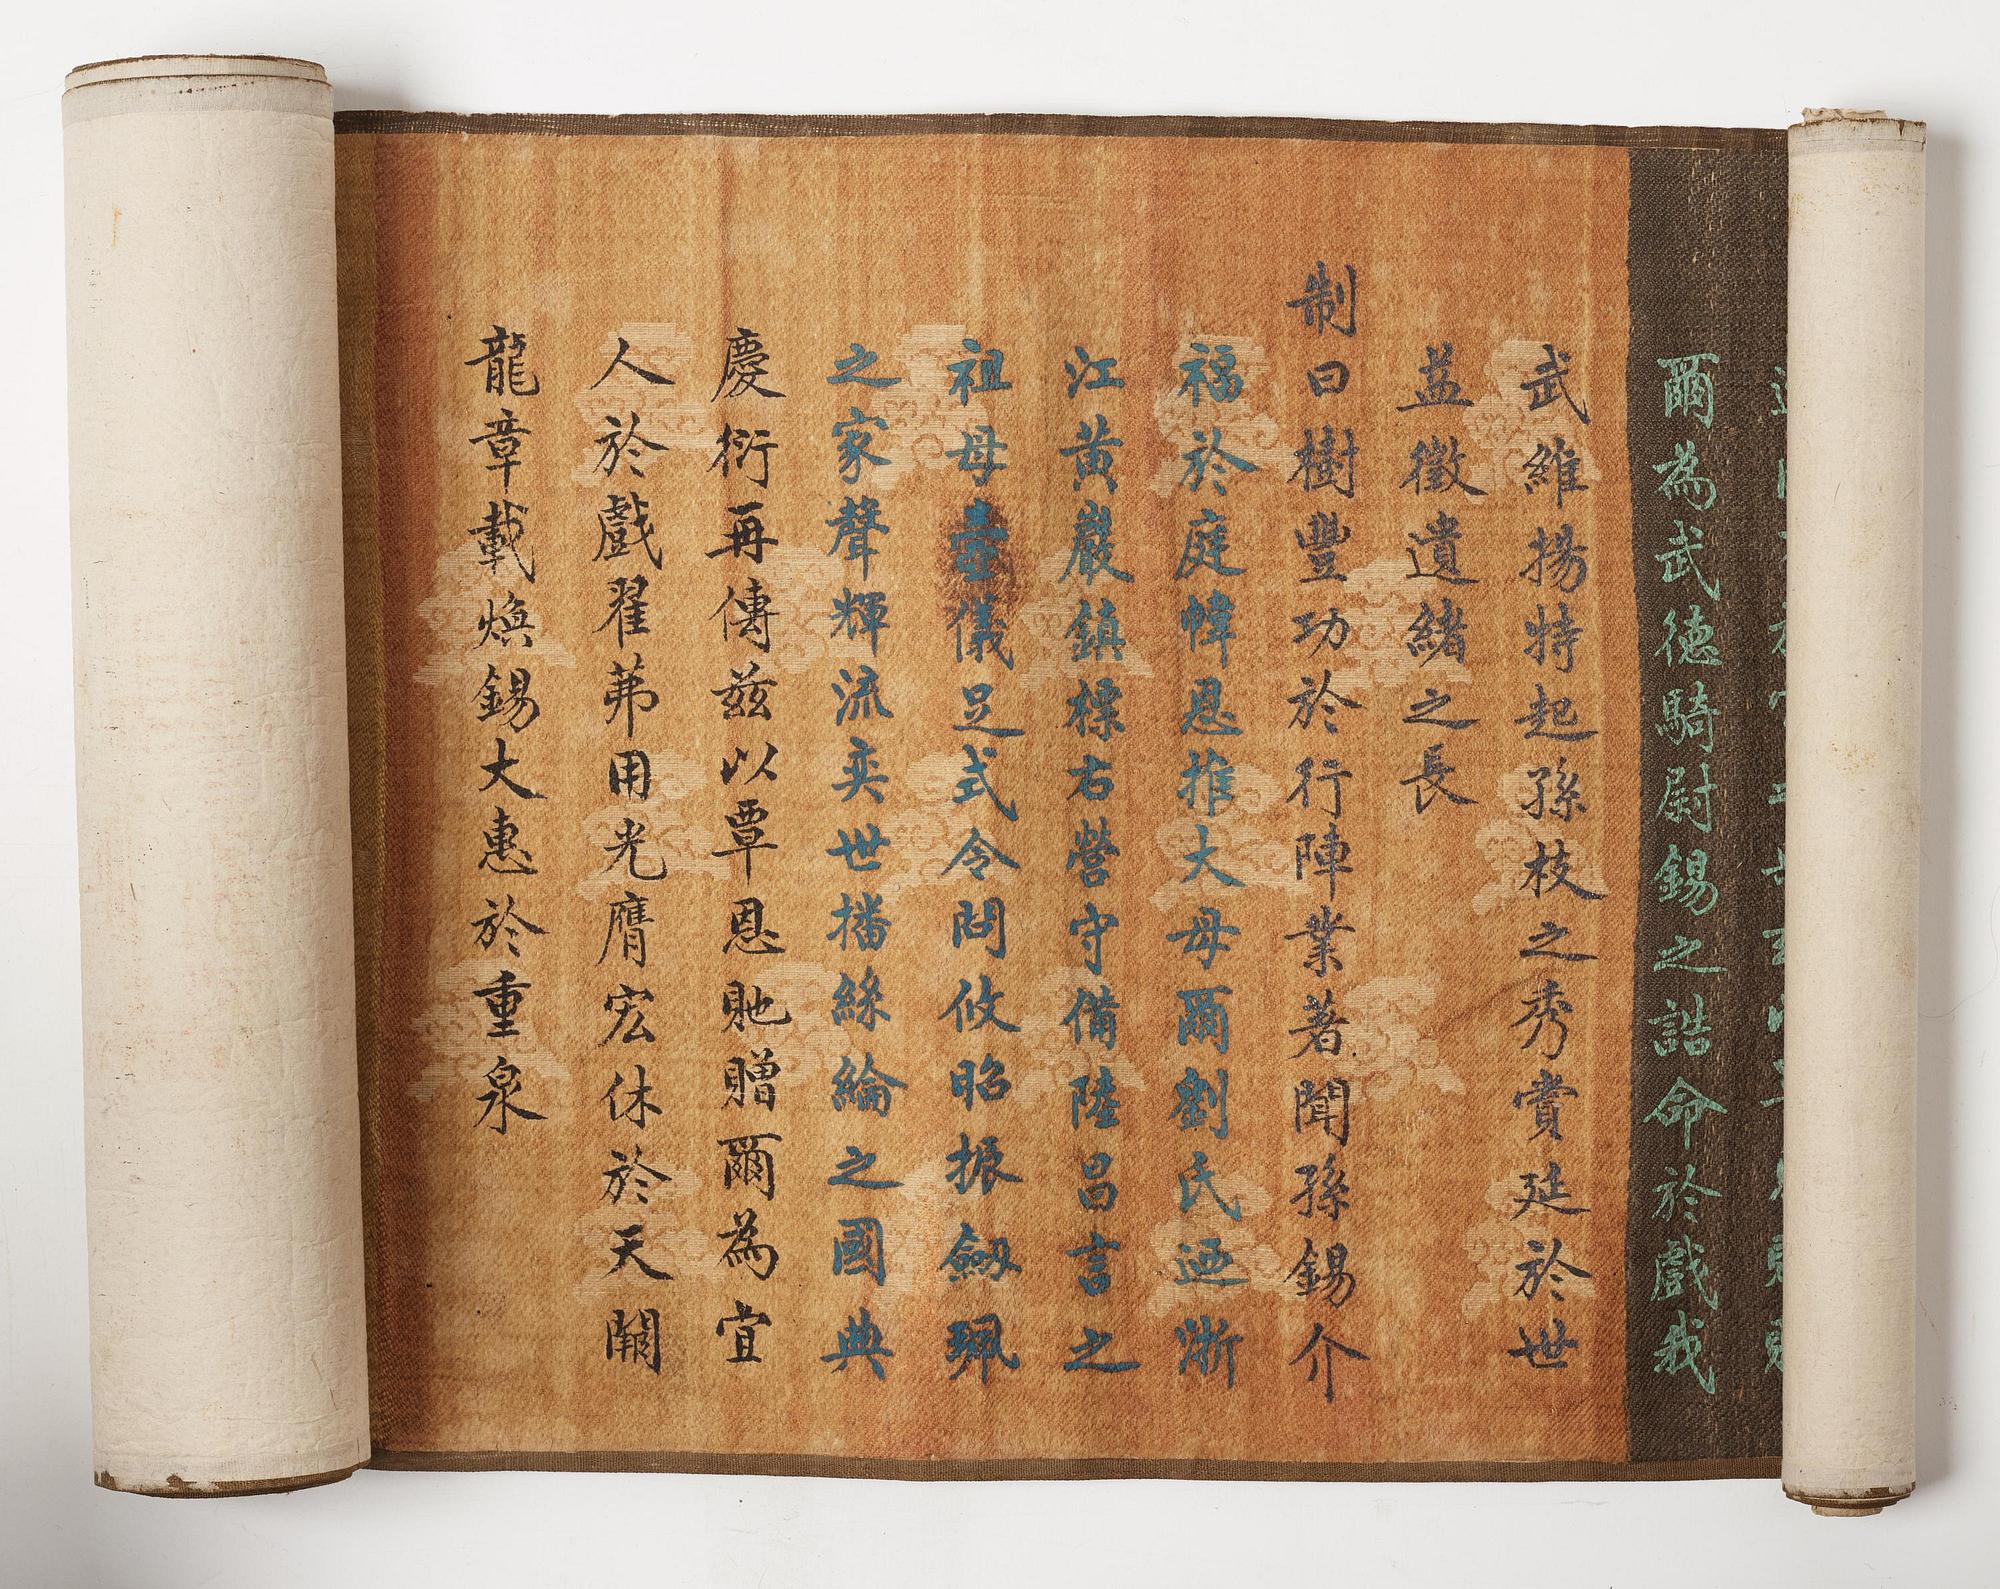 爾為武德騎尉錫之誥命於戲我
武維揚特起孫枝之秀賞延於世
益徵遺緒之長
制曰樹豐功於行陣業著聞孫錫介
福於庭幃恩推大母爾劉氏迺浙
江黃巖鎮標右營守備陸昌言之
祖母壼儀足式令問攸昭振劒珮
之家聲輝流奕世播絲綸之國典
慶衍再傳茲以覃恩貤贈爾為宜
人於戲翟茀用光膺宏休於天闕
龍章載煥錫大惠於重泉